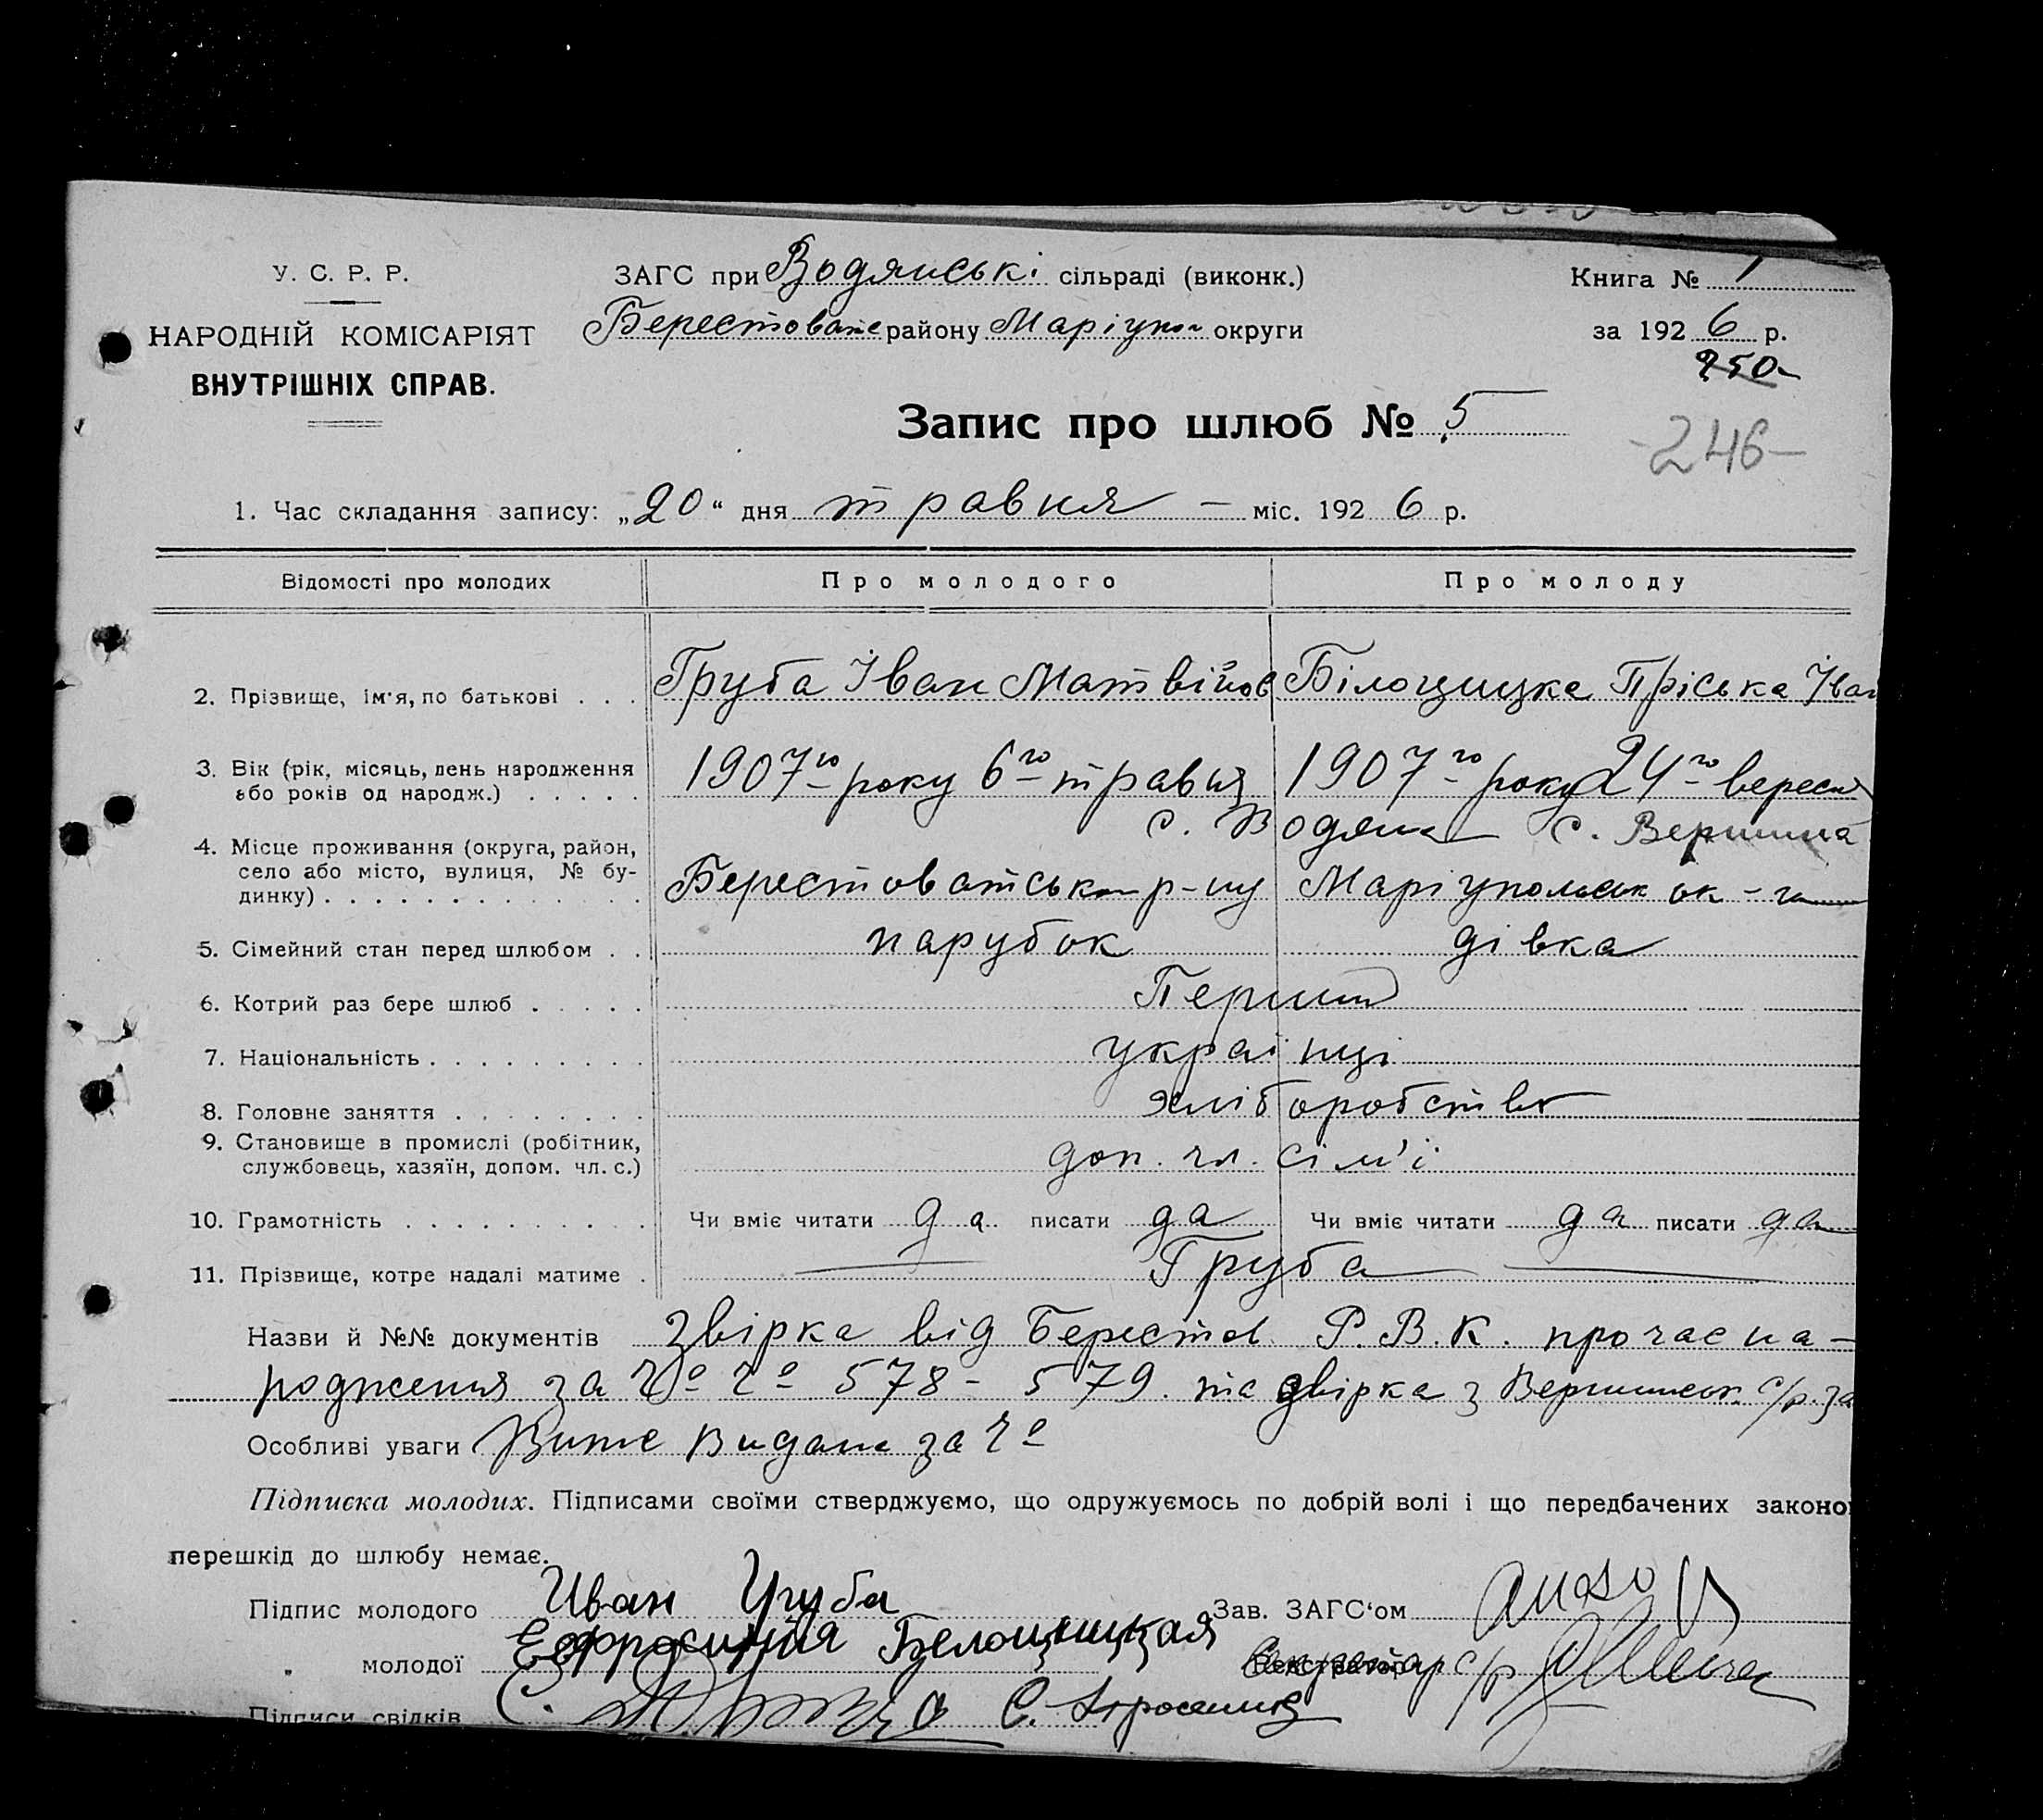 У. С. Р. Р.
НАРОДНІЙ КОМІСАРІЯТ
ВНУТРІШНІХ СПРАВ.
ЗАГС при Водянські сільраді (виконк.)
Берестовате району Маріупол округи
Книга № 1
за 1926 р.
250
-246-
Запис про шлюб № 5
1. Час складання запису: „20“ дня травня — міс. 1926 р.
Відомості про молодих Про молодого Про молоду
2. Прізвище, ім'я, по батькові . . . Груба Іван Матвійов Білоцицка Пріська Іван
3. Вік (рік, місяць, день народження 1907го року 6го травня 1907го року 24го вересн
або років од народж.) . . . . .
с. Водяна с. Вершина
4. Місце проживання (округа, район,
село або місто, вулиця, № бу-
динку) . . . . . . . . . . . . . Берестоватськ р-ну Маріупольськ ок-ги
5. Сімейний стан перед шлюбом . . парубок дівка
6. Котрий раз бере шлюб . . . . . Перший
7. Національність . . . . . . . . . українці
8. Головне заняття . . . . . . . . хліборобство
9. Становище в промислі (робітник,
службовець, хазяїн, допом. чл. с.) доп. чл. сім'ї
10. Грамотність . . . . . . . . . . Чи вміє читати да писати да Чи вміє читати да писати да
11. Прізвище, котре надалі матиме . Груба
Назви й №№ документів звірка від Берестов. Р.В.К. про час на-
родження за Чо Чо 578 - 579. та звірка з Вершинськ. с/р. за
Особливі уваги видана за Чо
Підписка молодих. Підписами своїми стверджуємо, що одружуємось по добрій волі і що передбачених законо
перешкід до шлюбу немає.
Підпис молодого Иван Груба Зав. ЗАГС‘ом
„ молодої Ефросиния Белоцицкая Секретар с/р
Підписи свідків